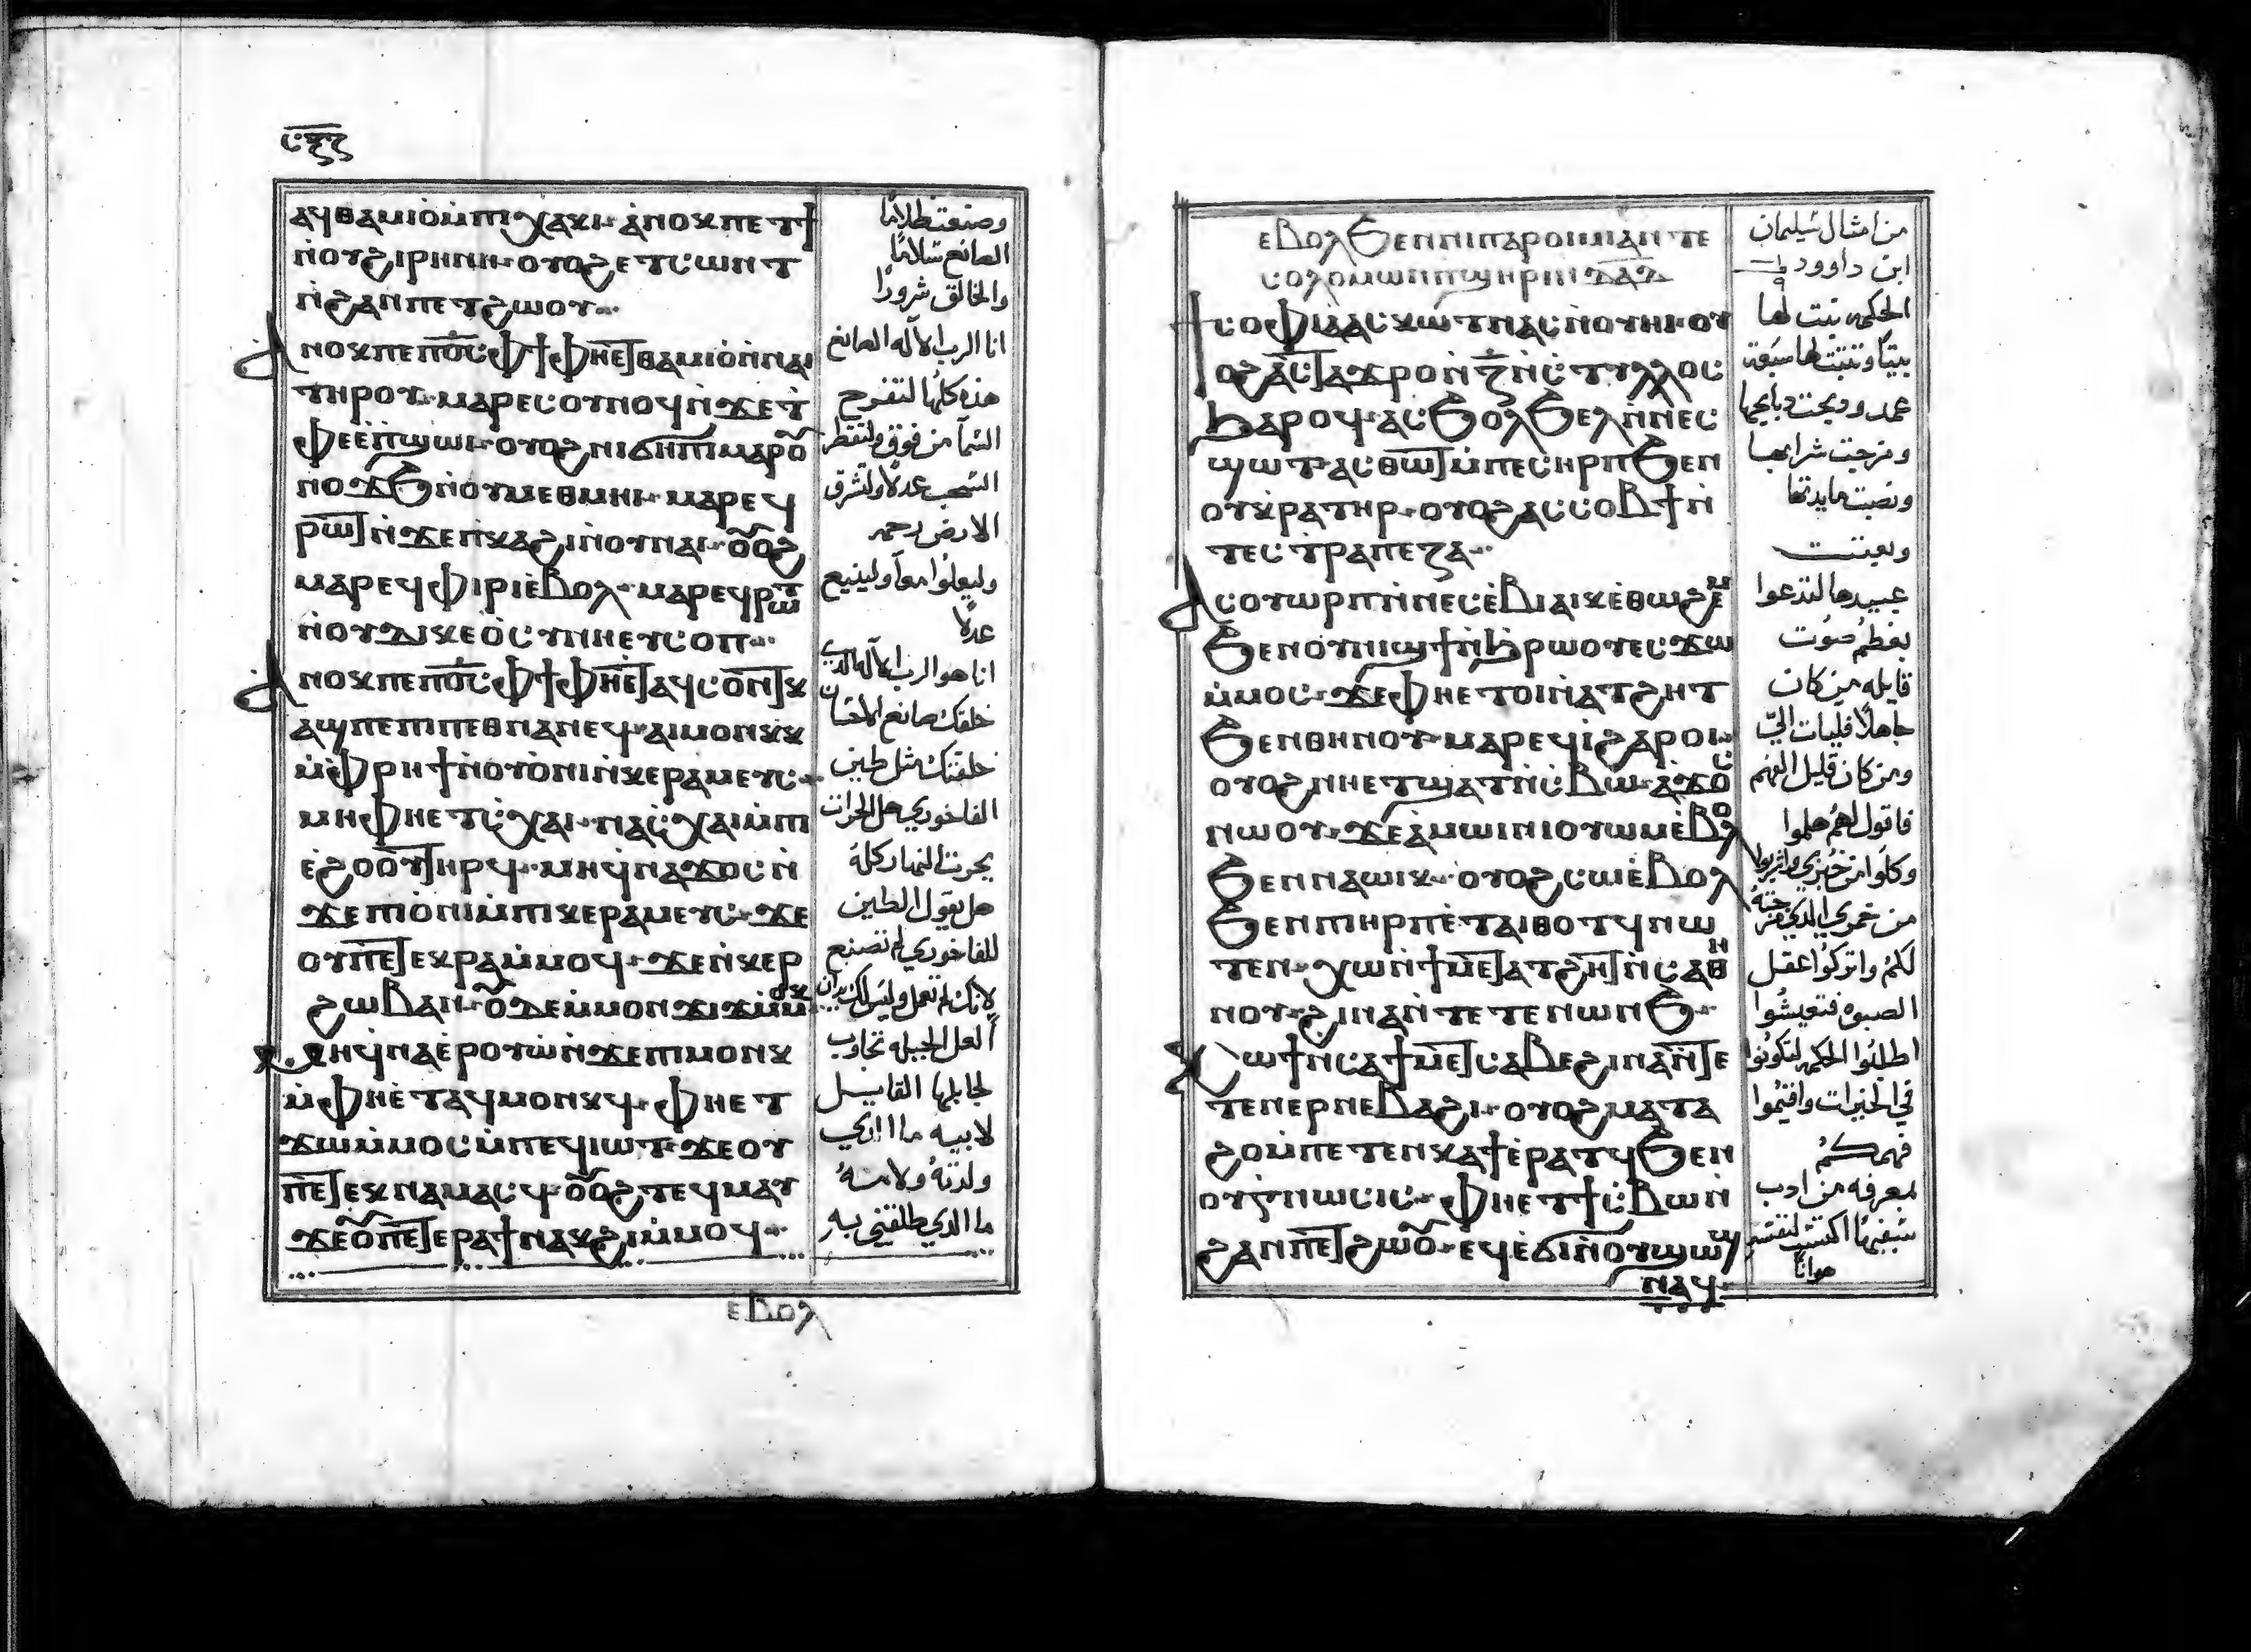 ⲥⲝⲍ
ⲁϥⲑⲁⲙⲓⲟ̀ⲙ̀ⲡⲓⲭⲁⲕⲓ· ⲁ̀ⲛⲟⲕⲡⲉⲧϯ
ⲛ̀ⲟⲩϩⲓⲣⲏⲛⲏ· ⲟⲩⲟϩⲉⲧⲥⲱⲛⲧ
ⲛ̀ϩⲁⲛⲡⲉⲧϩⲱⲟⲩ
ⲁ̀ⲛⲟⲕⲡⲉⲡⲟ̅ⲥ̅ⲫϯⲫⲏⲉⲧⲑⲁⲙⲓⲟ̀ⲛ̀ⲛⲁⲓ
ⲧⲏⲣⲟⲩ· ⲙⲁⲣⲉⲥⲟⲩⲛⲟϥⲛ̀ϫⲉⲧ
ⲫⲉⲉ̀ⲡ̀ϣⲱⲓ· ⲟⲩⲟϩⲛⲓϭⲏⲡⲓⲙⲁⲣⲟ
ⲛⲟϫϧⲛ̀ⲟⲩⲙⲉⲑⲙⲏⲓ· ⲙⲁⲣⲉϥ
ⲣⲱⲧⲛ̀ϫⲉⲡ̀ⲕⲁϩⲓⲛ̀ⲟⲩⲛⲁⲓ· ⲟⲟϩ
ⲙⲁⲣⲉϥⲫⲓⲣⲓⲉ̀ⲃⲟⲗ· ⲙⲁⲣⲉϥⲣⲱⲧ
ⲛ̀ⲟⲩⲇⲓⲕⲉⲟ̀ⲥⲩⲛⲏⲉⲩⲥⲟⲡ
ⲁ̀ⲛⲟⲕⲡⲉⲡⲟ̅ⲥ̅ⲫϯⲫⲏⲉⲧⲁϥⲥⲟⲛⲧⲕ
ⲁϣⲡⲉⲡⲓⲡⲉⲑⲛⲁⲛⲉϥ· ⲁⲓⲙⲟⲛⲕⲕ
ⲙ̀ⲫⲣⲏϯⲛ̀ⲟⲩⲟ̀ⲙⲓⲛ̀ⲕⲉⲣⲁⲙⲉⲩⲥ
ⲙⲏⲫⲏⲉⲧⲥ̀ⲭⲁⲓ· ⲛⲁⲥ̀ⲭⲁⲓⲙ̀ⲡⲓ
ⲉ̀ϩⲟⲟⲩⲧⲏⲣϥ· ⲙⲏϥⲛⲁϫⲟⲥⲛ̀
ϫⲉⲡⲓⲟ̀ⲙⲓⲙ̀ⲡⲓⲕⲉⲣⲁⲙⲉⲩⲥ· ϫⲉ
ⲟⲩⲡⲉⲧⲉⲕⲣⲁⲙ̀ⲙⲟϥ· ϫⲉⲛ̀ⲕⲉⲣ
ϩⲱⲃⲁⲛ· ⲟⲇⲉⲙ̀ⲙⲟⲛϫⲓϫⲙ̀ⲙⲟⲕ
ⲙⲏϥⲛⲁⲉ̀ⲣⲟⲩⲱ̀ⲛ̀ϫⲉⲡⲓⲙⲟⲛⲕ
ⲙ̀ⲫⲏⲉ̀ⲧⲁϥⲙⲟⲛⲕϥ· ⲫⲏⲉⲧ
ϫⲱⲙ̀ⲙⲟⲥⲙ̀ⲡⲉϥⲓⲱⲧ· ϫⲉⲟⲩ
ⲡⲉⲧⲉⲕⲛⲁⲙⲁⲥϥ· ⲟⲟϩⲧⲉϥⲙⲁⲩ
ϫⲉⲟⲡⲉⲧⲉⲣⲁϯⲛⲁⲕϩⲓⲙ̀ⲙⲟϥ
ⲉⲃⲟⲗ
وصنعت ظلامًا
الصانع سلامًا
والخالق شرورًا
انا الرب الاله الصانع
هذه كلها لتفرح
السما من فوق ولتقطر
السحب عدلًا ولتشرق
الارض رحمه
وليعلوا معا ولينيع
عدلًا
انا هو الرب الاله الذي
خلقك صانع الاحسان
خلقتك مثل طين
الفاخوري هل الحرات
يحرث النهار كله
هل يقول الطين
للفاخوري لم تصنع
لانك لم تعمل وليس لك يدان
العل الجبله تجاوب
لجابلها القايل
لابيه ما اري
ولدته ولامه
ما الدي طلقتي به
ⲉⲃⲟⲗϧⲉⲛⲛⲓⲡⲁⲣⲟⲓⲙⲓⲁⲛⲧⲉ
ⲥⲟⲗⲟⲙⲱⲛⲡϣⲏⲣⲓⲛ̀ⲇⲁⲇ
ϯⲥⲟⲫⲓⲁ̀ⲁⲥⲕⲱⲧⲛⲁⲥⲛ̀ⲟⲩⲏⲓ· ⲟⲩ
ⲟϩⲁⲥⲧⲁϫⲣⲟⲛ̀ⲍ̅ⲛ̀ⲥⲧⲩⲗⲗⲟⲥ
ϧⲁⲣⲟϥ· ⲁⲥϧⲟⲗϧⲉⲗⲛ̀ⲛⲉⲥ
ϣⲱⲧ· ⲁⲥⲑⲱⲧⲙ̀ⲡⲉⲥⲏⲣⲡϧⲉⲛ
ⲟⲩⲕ̀ⲣⲁⲧⲏⲣ· ⲟⲩⲟϩⲁⲥⲥⲟⲃϯⲛ̀
ⲧⲉⲥⲧ̀ⲣⲁⲡⲉⲍⲁ
ⲁⲥⲟⲩⲱⲣⲡⲛ̀ⲛⲉⲥⲉ̀ⲃⲓⲁⲓⲕⲉ̀ⲑⲱϩⲉⲙ
ϧⲉⲛⲟⲩⲛⲓϣϯⲛ̀ϧⲣⲱⲟⲩⲉⲥϫⲱ
ⲙ̀ⲙⲟⲥ· ϫⲉⲫⲏⲉⲧⲟⲓⲛ̀ⲁⲧϩⲏⲧ
ϧⲉⲛⲑⲏⲛⲟⲩ· ⲙⲁⲣⲉϥⲓ̀ϩⲁⲣⲟⲓ
ⲟⲩⲟϩⲛⲏⲉⲧϣⲁⲧⲛ̀ⲥⲃⲱ· ⲁ̀ϫⲟⲥ
ⲛⲱⲟⲩ· ϫⲉⲁ̀ⲙⲱⲓⲛⲓⲟⲩⲱⲙⲉ̀ⲃⲟⲗ
ϧⲉⲛⲛⲁⲱⲓⲕ· ⲟⲩⲟϩⲥⲱⲉ̀ⲃⲟⲗ
ϧⲉⲛⲡⲓⲏⲣⲡⲉ̀ⲧⲁⲓⲑⲟⲧϥⲛⲱ
ⲧⲉⲛ· ⲭⲱⲛ̀ϯⲙⲉⲧⲁⲧϩⲏⲧⲛ̀ⲥⲁⲑⲏ
ⲛⲟⲩ· ϩⲓⲛⲁⲛ̀ⲧⲉⲧⲉⲛⲱⲛϧ
ⲕⲱϯⲛ̀ⲥⲁϯⲙⲉⲧⲥⲁⲃⲉϩⲓⲛⲁⲛ̀ⲧⲉ
ⲧⲉⲛⲉⲣⲛⲉⲃⲁϩⲓ· ⲟⲩⲟϩⲙⲁⲧⲁ
ϩⲟⲙ̀ⲡⲉⲧⲉⲛⲕⲁϯⲉ̀ⲣⲁⲧϥϧⲉⲛ
ⲟⲩⲅ̀ⲛⲱⲥⲓⲥ· ⲫⲏⲉⲧϯⲥ̀ⲃⲱⲛ̀
ϩⲁⲛⲡⲉⲧϩⲱⲟ· ⲉϥⲉ̀ϭⲓⲛ̀ⲟⲩϣⲱϣ
ⲛⲁϥ
من امثال سليمان
ابن داوود
الحكمه بنت لها
بيتا وتبتت لها سبعة
عمد ودبحت دبايحها
ومزجت شرابها
ونصبت مايدتها
وبعثت
عبيدها لتدعوا
بعظم صوت
قايله من كان
جاهلًا فليات اليّ
ومن كان قليل الفهم
فاقول لهم هلموا
وكلوا من خبزي واشربوا
من خمري الدي مزجته
لكم واتركوا عقل
الصبوه فتعيشوا
اطلبوا الحكمه لتكونوا
في الخيرات واقيموا
فهمكم
بمعرفه من ادب
هوانًا